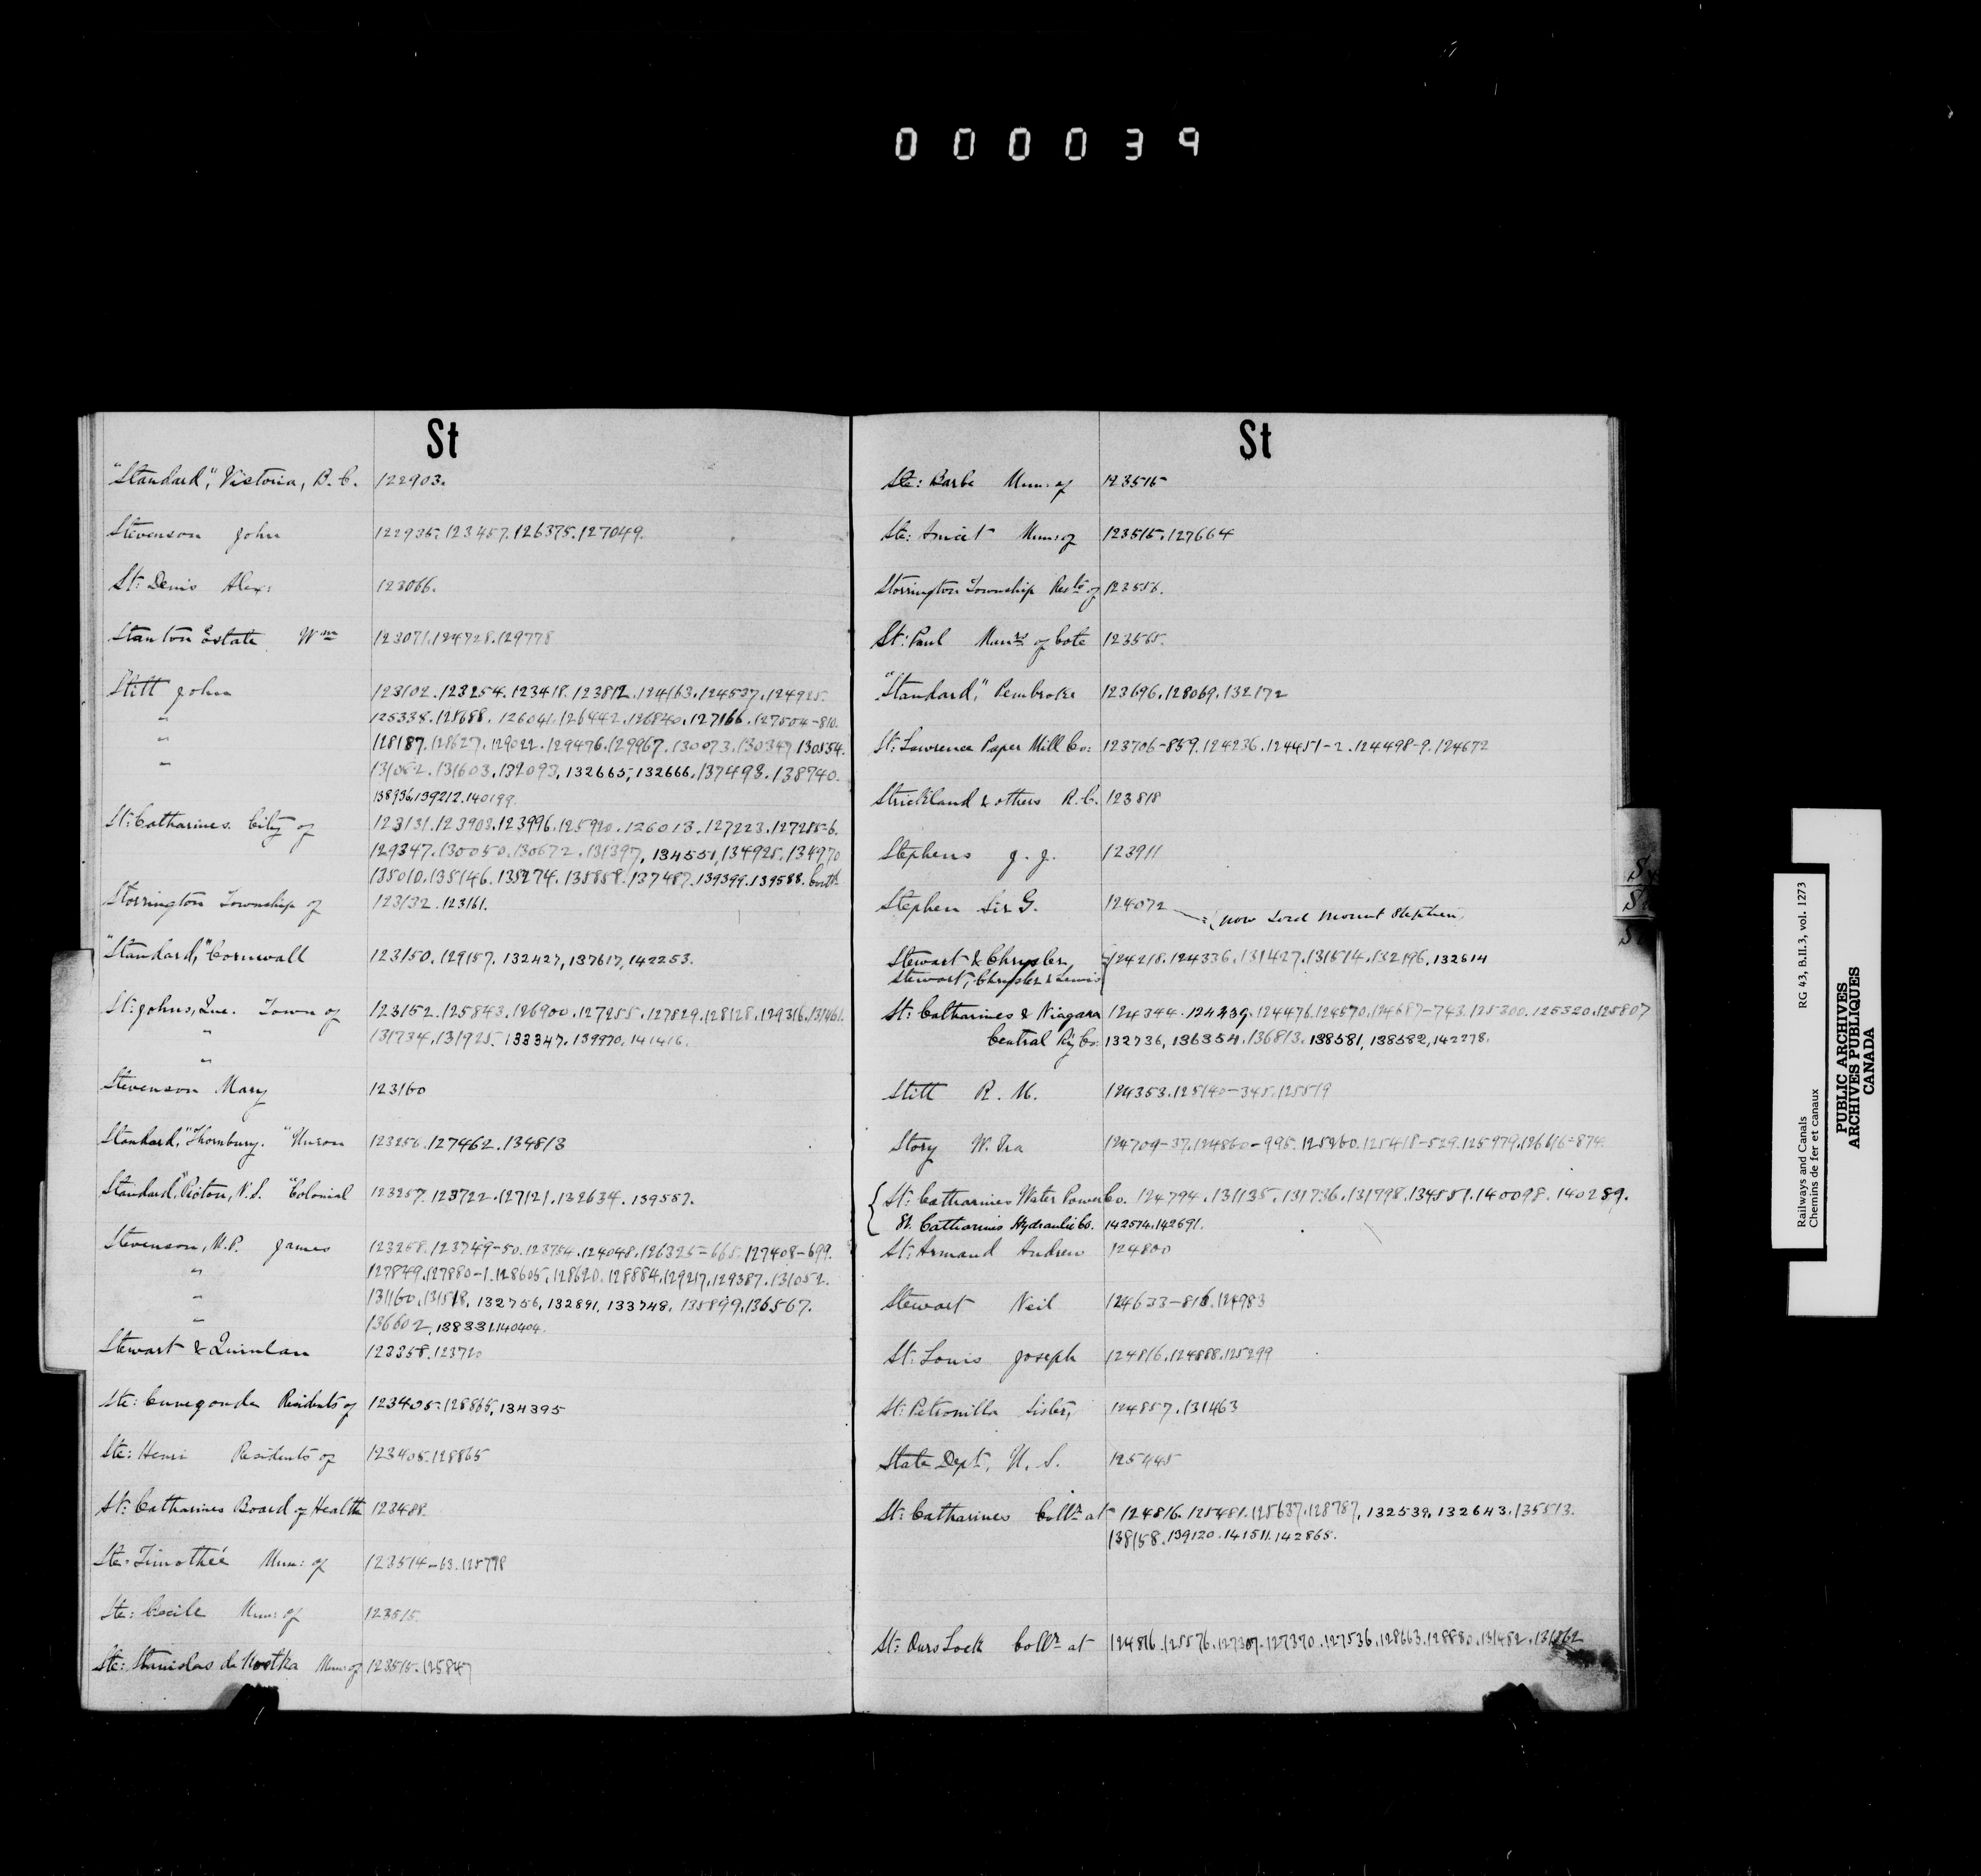 000039
St
"Standard", Victoria, B.C. 122903.
Stevenson John 122935.123457.126375.127049.
St: Denis Alex: 123066.
Stanton Estate Wm 123071.124728.129778
Stitt John 123102.123254.123418.123812.124163.124537.124925.
" 125338.125688.126041.126442.126840.127166.127504-810.
" 128187.128627.129022.129476.129967.130073.130347.130534.
" 131082.131603.132093,132665,132666.137498.138740.
138936.139212.140199.
St: Catharines City of 123131.123903.123996.125920.126013.127223.127285-6.
129347.130050.130672.131397,134551,134925.134970
135010.135146.135274.135858.137487.139399.139588.
Storrington Township of 123132.123161.
"Standard," Cornwall 123150.129157.132427,137617,142253.
St: Johns, Que. Town of 123152.125843.126900.127255.127829.128128.129316.131461.
" 131734.131925.133347.139970.141416.
"
Stevenson Mary 123160
Standard," Thornbury. "Huron 123256.127462.134813
Standard," Pictou, N.S. "Colonial 123257.123722.127121.132634.139557.
Stevenson, M.P. James 123258.123749-50.123754.124048.126325-665.127408-699.
" 127849.127880-1.128605.128620.128884.129217.129387.131052.
" 131160.131518,132756,132891,133748,135899.136567.
" 136602,138331.140404.
Stewart & Quinlan 123358.123720
Ste: Cunegonde Residents of 123405.128865,134395
Ste: Henri Residents of 123405.128865
St: Catharines Board of Health 123488.
Ste: Timothée Mun: of 123514-63.125798
Ste: Cecile Mun: of 123515.
Ste: Stanislas de Kostka Mun: of 123515.125847
St
Ste: Barbe Mun: of 123515
Ste: Anicet Mun: of 123515.127664
Storrington Township Resta of 123556.
St: Paul of Cote 123565.
"Standard," Pembroke 123696.128069.132172
St: Lawrence Paper Mill Co: 123706-859.124236.124451-2.124498-9.124672
Strickland & others R.C. 123818
Stephens J.J. 123911
Stephen Sir G. 124072 (now Lord Mount Stephen)
Stewart & Chrysler, 124218.124336.131427.131574.132196,132614
Stewart, Chrysler & Lewis
St: Catharines & Niagara 124344.124439.124476.124570.124687-743.125300.125320.125807
Central Ry Co: 132736,136354.136813.138581,138582,142278.
Stitt R.M. 124353.125140-345.125519
Story W. Ira 124709-37.124860-995.125260.125418-529.125979.126616-874.
St: Catharines Water Power Co. 124794.131135.131736.131798.134551.140098.140289.
St. Catharines Hydraulic Co. 142574.142691.
St: Armand Andrew 124800
Stewart Neil 124633-816.124983
St: Louis Joseph 124816.124888.125299
St: Petronilla Sister, 124857.131463
State Dept. U.S. 125445
St: Catharines Collr at 124816.125481.125637.128787,132539,132643.135513.
138158.139120.141511.142865.
St: Ours Lock Collr at 124816.125576.127307.127370.127536.128663.128880.131482.131862
Railways and Canals RG 43, B.II.3, vol. 1273
Chemins de fer et canaux
PUBLIC ARCHIVES
ARCHIVES PUBLIQUES
CANADA